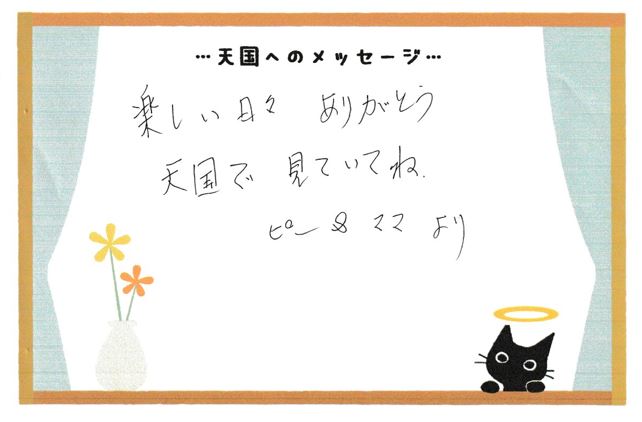 …天国へのメッセージ…
楽しい日々 ありがとう
天国で 見ていてね.
ピー & ママ より